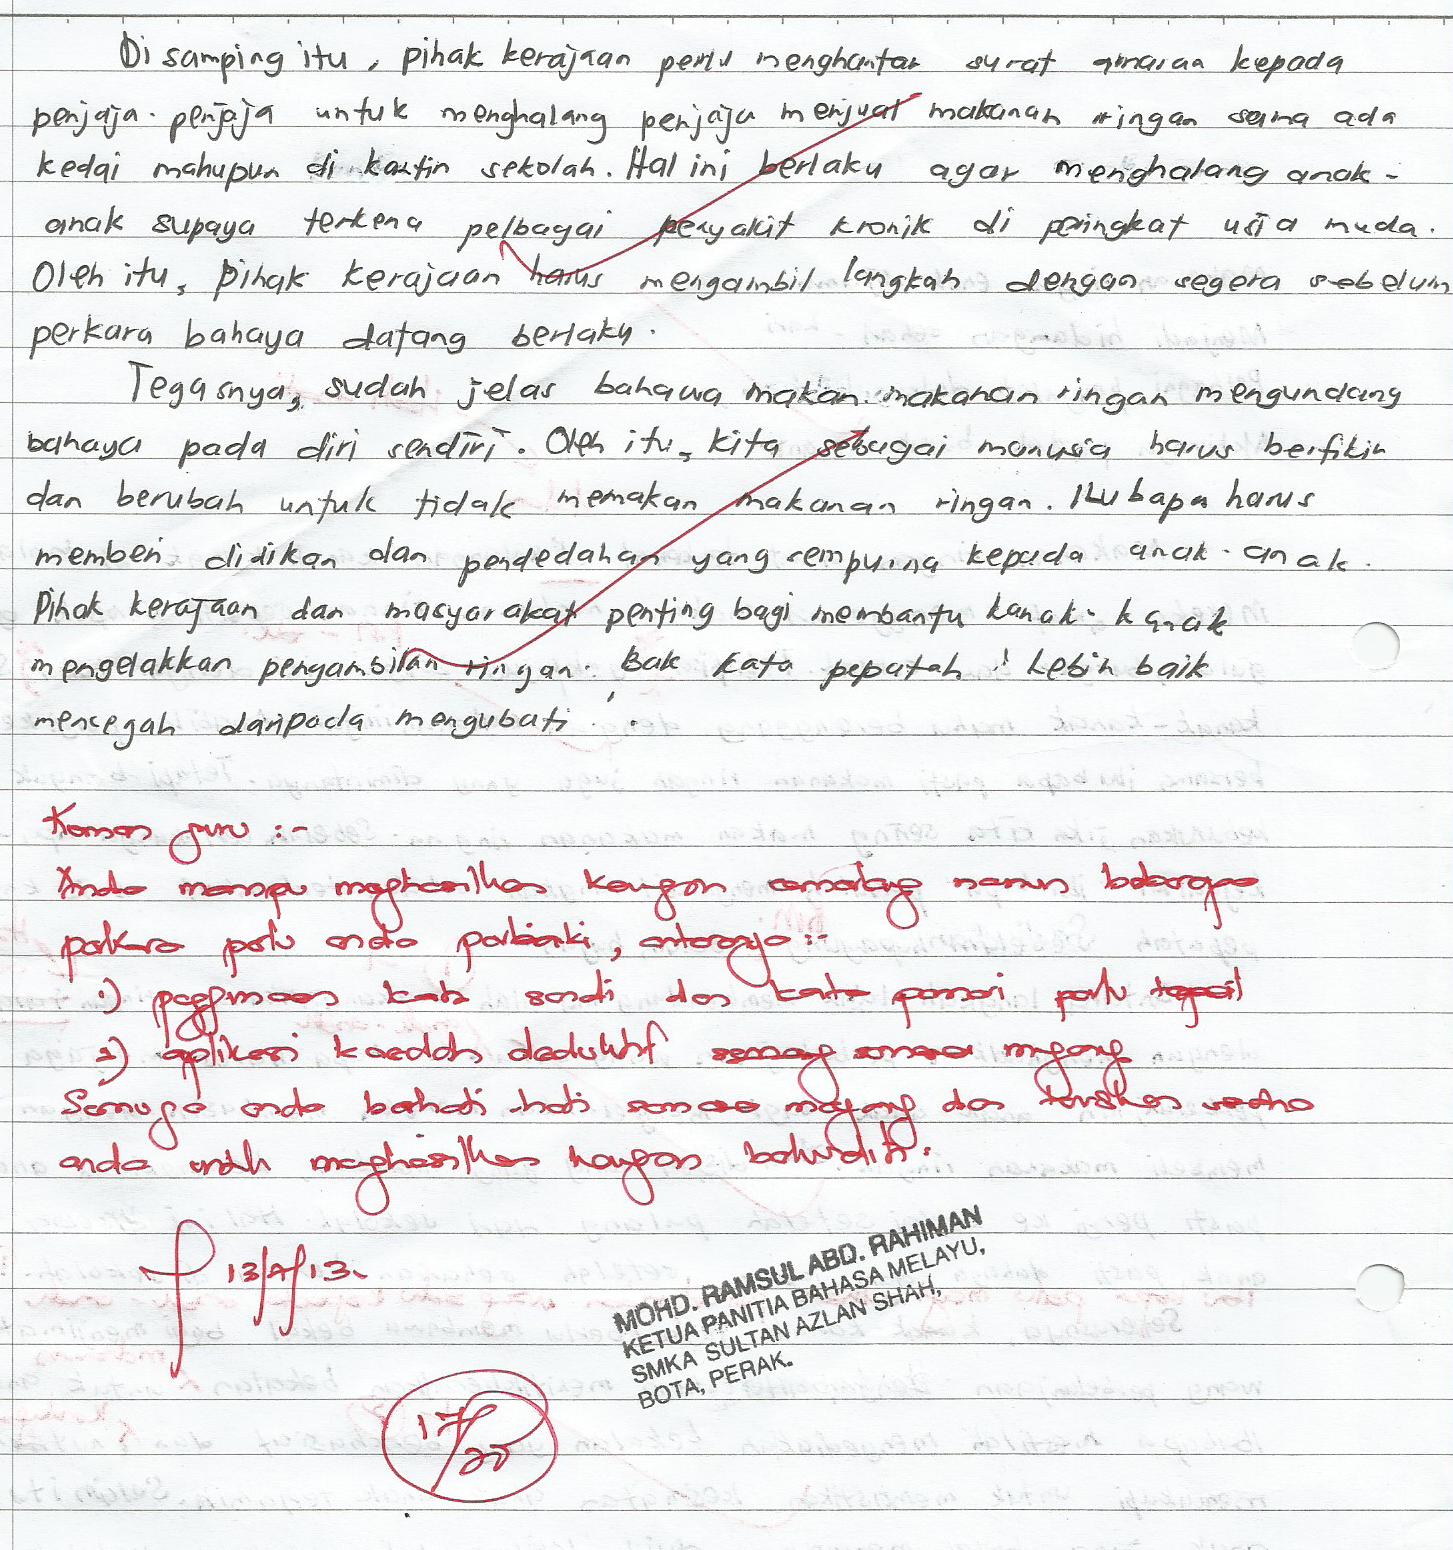 Di samping itu, pihak kerajaan perlu menghantar surat amaran kepada
penjaja-penjaja untuk menghalang penjaja menjual makanan ringan sama ada
kedai mahupun di kantin sekolah. Hal ini berlaku agar menghalang anak-
anak supaya terkena pelbagai penyakit kronik di peringkat usia muda.
Oleh itu, pihak kerajaan harus mengambil langkah dengan segera sebelum
perkara bahaya datang berlaku.
Tegasnya, sudah jelas bahawa makan makanan ringan mengundang
bahaya pada diri sendiri. Oleh itu, kita sebagai manusia harus berfikir
dan berubah untuk tidak memakan makanan ringan. Ibu bapa harus
memberi didikan dan pendedahan yang sempurna kepada anak-anak.
Pihak kerajaan dan masyarakat penting bagi membantu kanak-kanak
mengelakkan pengambilan ringan. Bak kata pepatah ' Lebih baik
mencegah daripada mengubati '.
Komen guru :-
Anda mampu menghasilkan karangan cemerlang namun beberapa
perkara perlu anda perbaiki, antaranya :-
1) penggunaan kata sendi dan kata pemeri perlu
2) aplikasi kaedah deduktif semasa mengarang
Semoga anda berhati-hati semasa mengarang dan teruskan usaha
anda untuk menghasilkan karangan berkualiti.
13/7/13.
MOHD. RAMSUL ABD. RAHIMAN
KETUA PANITIA BAHASA MELAYU,
SMKA SULTAN AZLAN SHAH,
BOTA, PERAK.
17/20